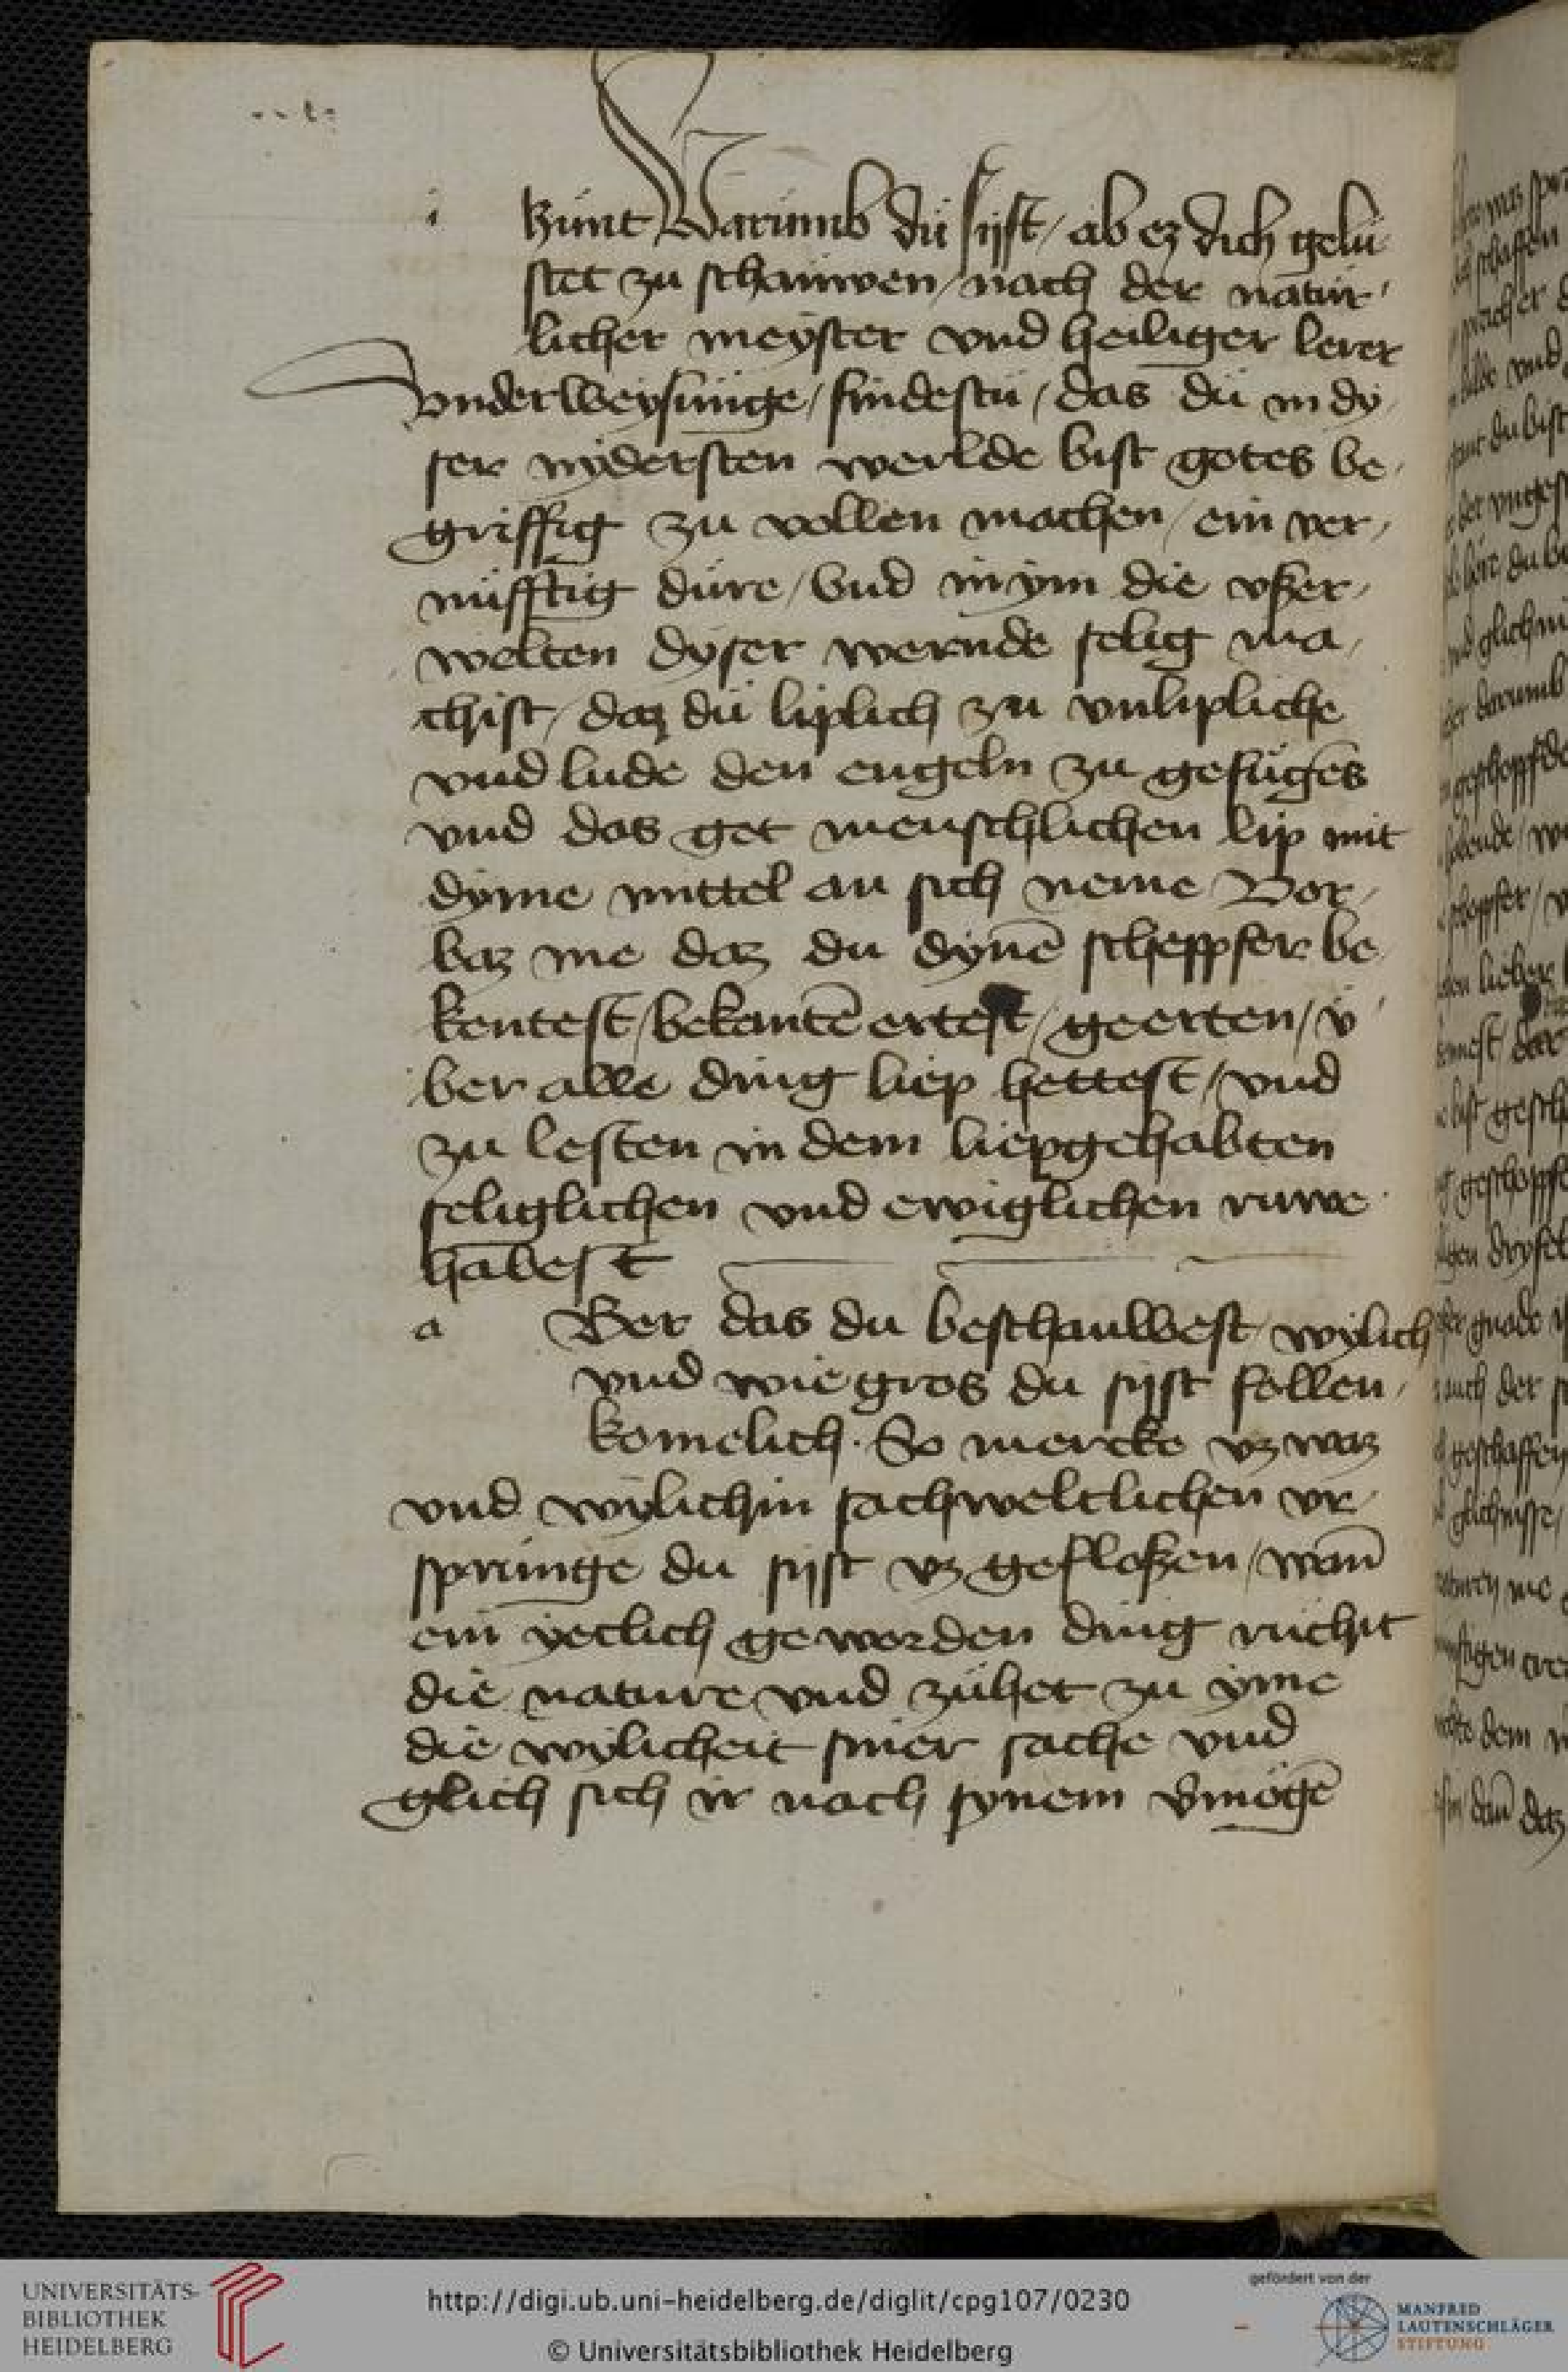 i hunt Warumb du sijst / ab ez dich gelu
stet zu schauwen / nach der natur
licher meyster vnd heiliger lerer
vnderweysunge / findestu / das du in dy
ser nydersten werlde bist gotes be
griffig zu vollen machen / ein ver
nufftig dure / Vnd in ym die vßer
welten dyser wernde selig ma
chist / daz du liplich zu vnlipliche
vnd lude den engeln zu gefuges
vnd das got menschlichen lip mit
dyme mittel an sich neme Vor
baz me daz du dynē scheppfer be
kentest / bekantē ertest / geerten / v
ber alle ding liep hettest / vnd
zu lesten in dem liepgehabten
seliglichen vnd ewiglichen ruwe
habest
a Ber das du beschauwest wylich
vnd wie gros du sijst follen
komelich. So mercke vz waz
vnd wylichin sachweltlichen vr
sprunge du sijst vz gefloßen / wan̄
ein yeclich geworden ding ruchit
die nature vnd zuhet zu yme
die wylicheit siner sache vnd
glich sich ir nach synem vmogē
UNIVERSITÄTS-
BIBLIOTHEK
HEIDELBERG
http://digi.ub.uni-heidelberg.de/diglit/cpg107/0230
© Universitätsbibliothek Heidelberg
gefördert von der
MANFRED
LAUTENSCHLÄGER
STIFTUNG